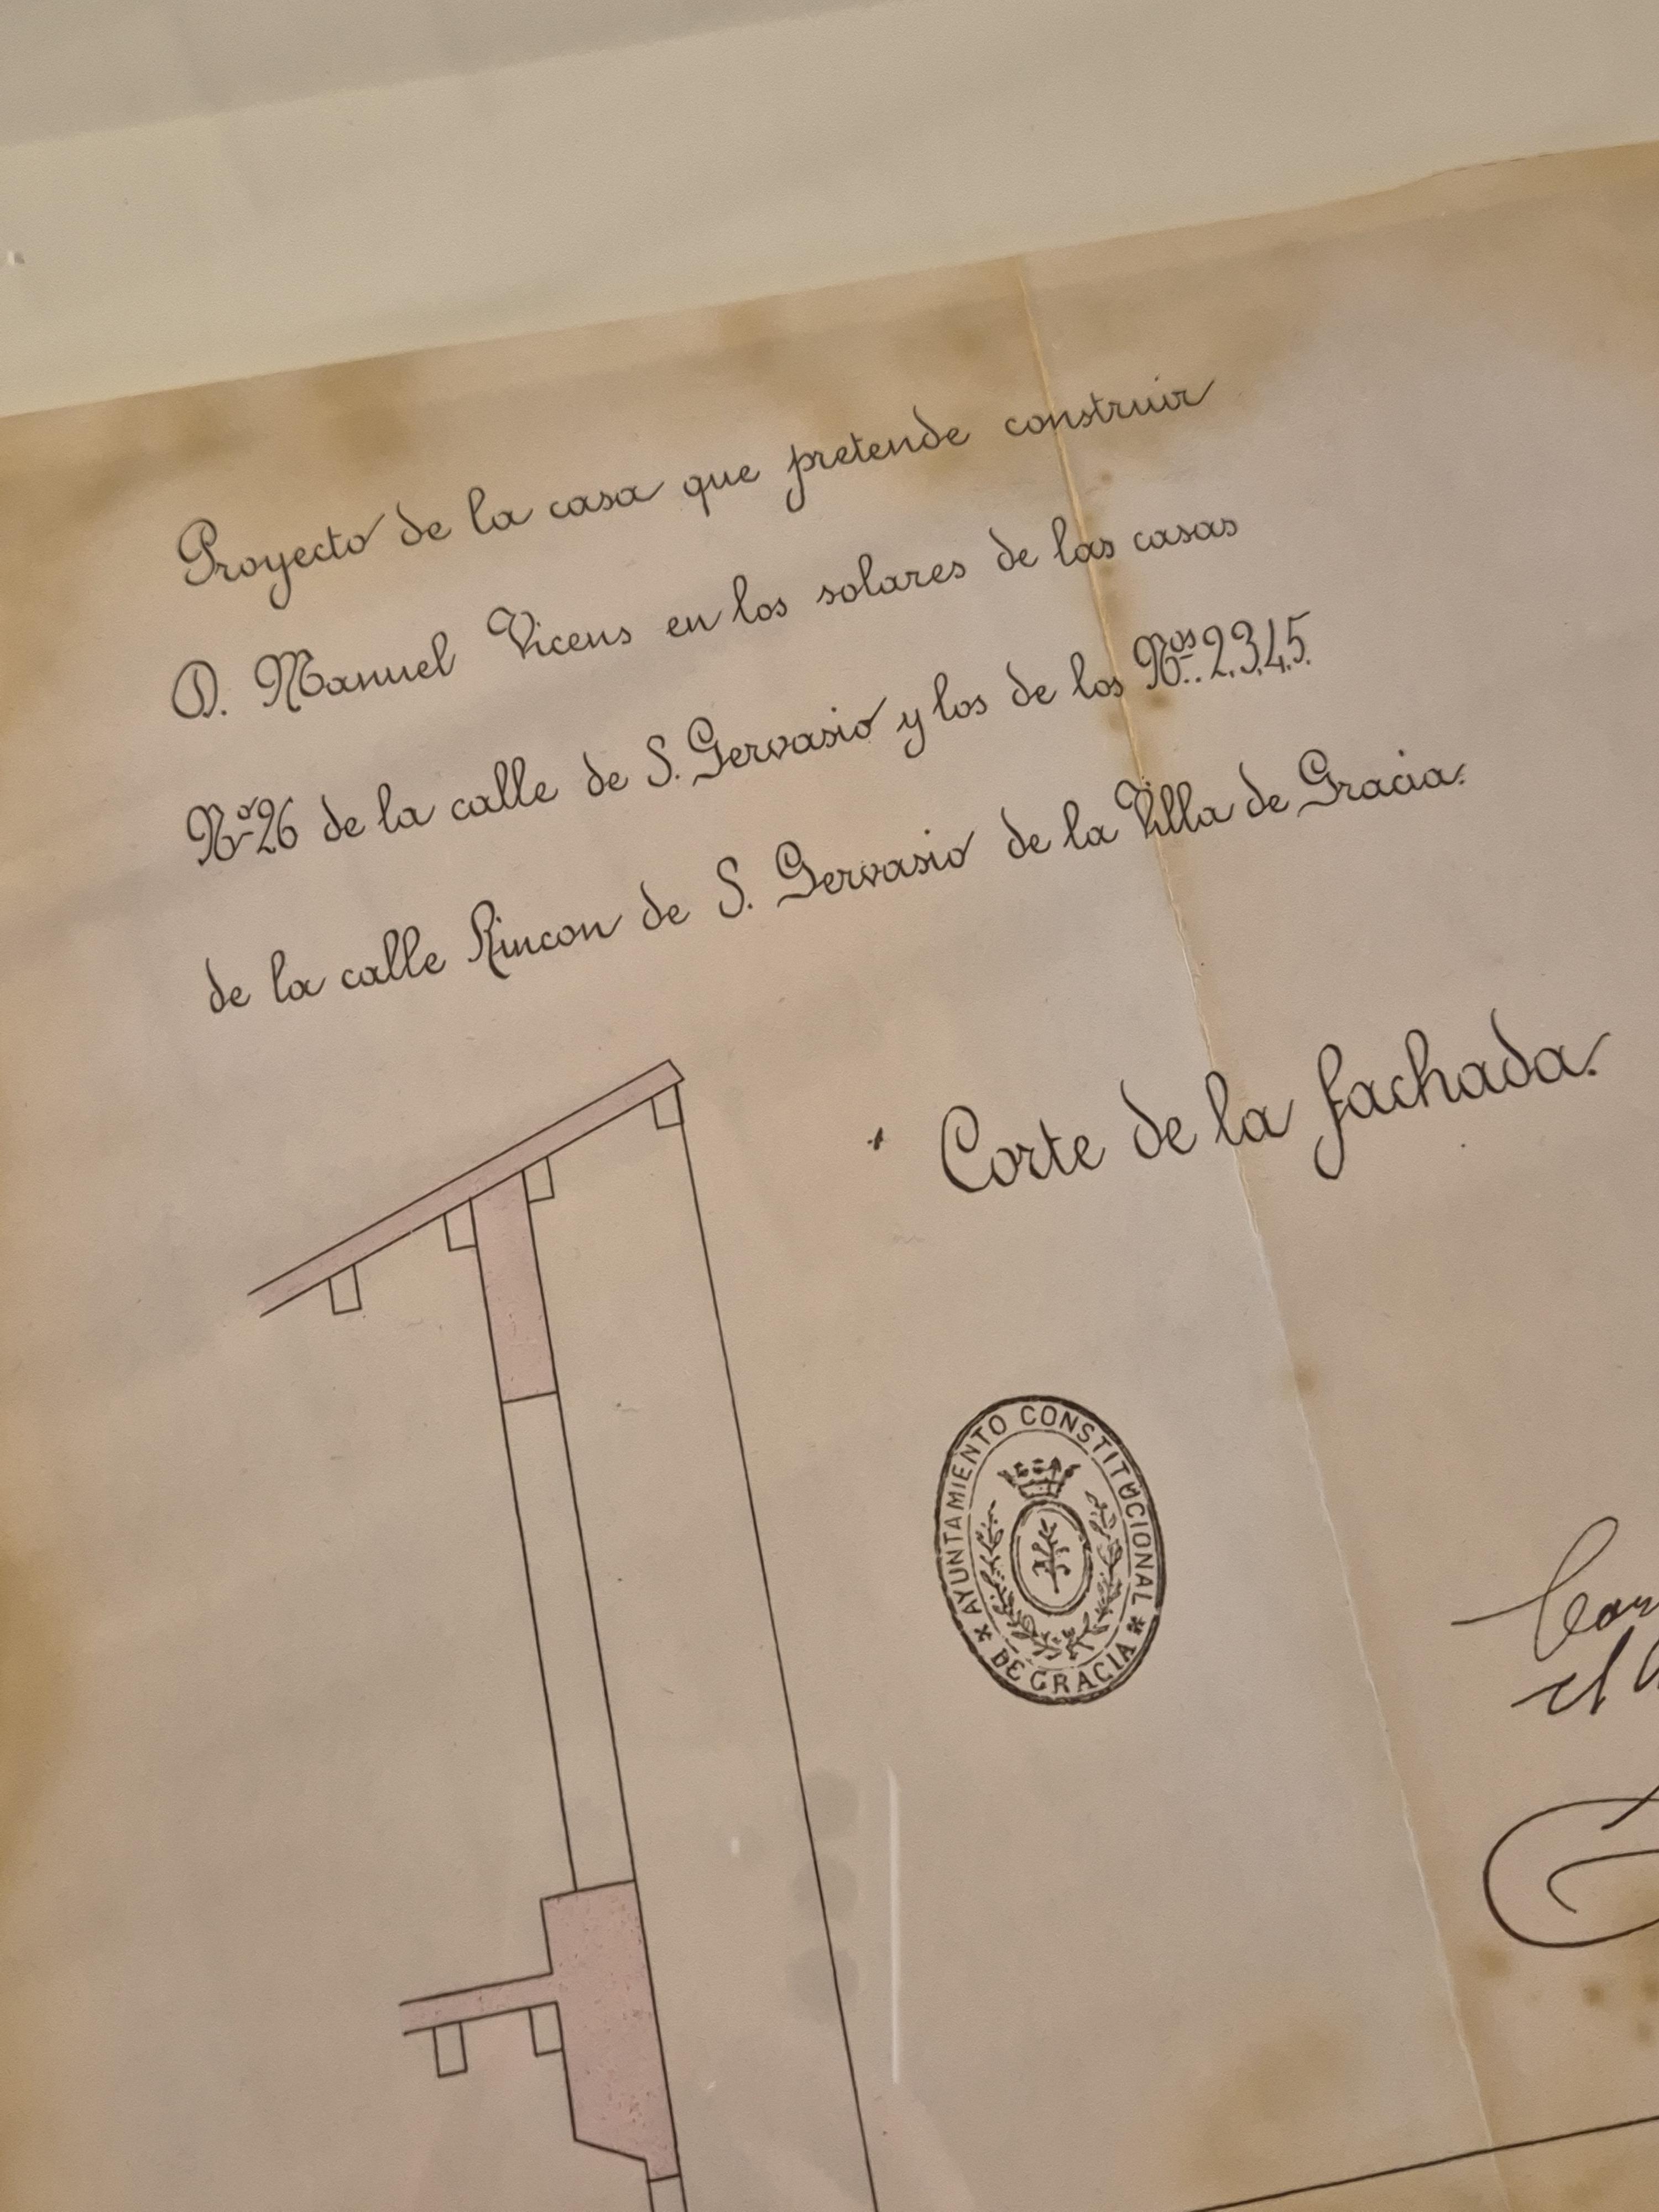 Proyecto de la casa que pretende construir
D. Manuel Vicens en los solares de las casas
Nº 26 de la calle de S. Gervasio y los de los Nos. 2.3.4.5.
de la calle Rincon de S. Gervasio de la Villa de Gracia.
Corte de la fachada.
AYUNTAMIENTO CONSTITUCIONAL
* DE GRACIA *
el